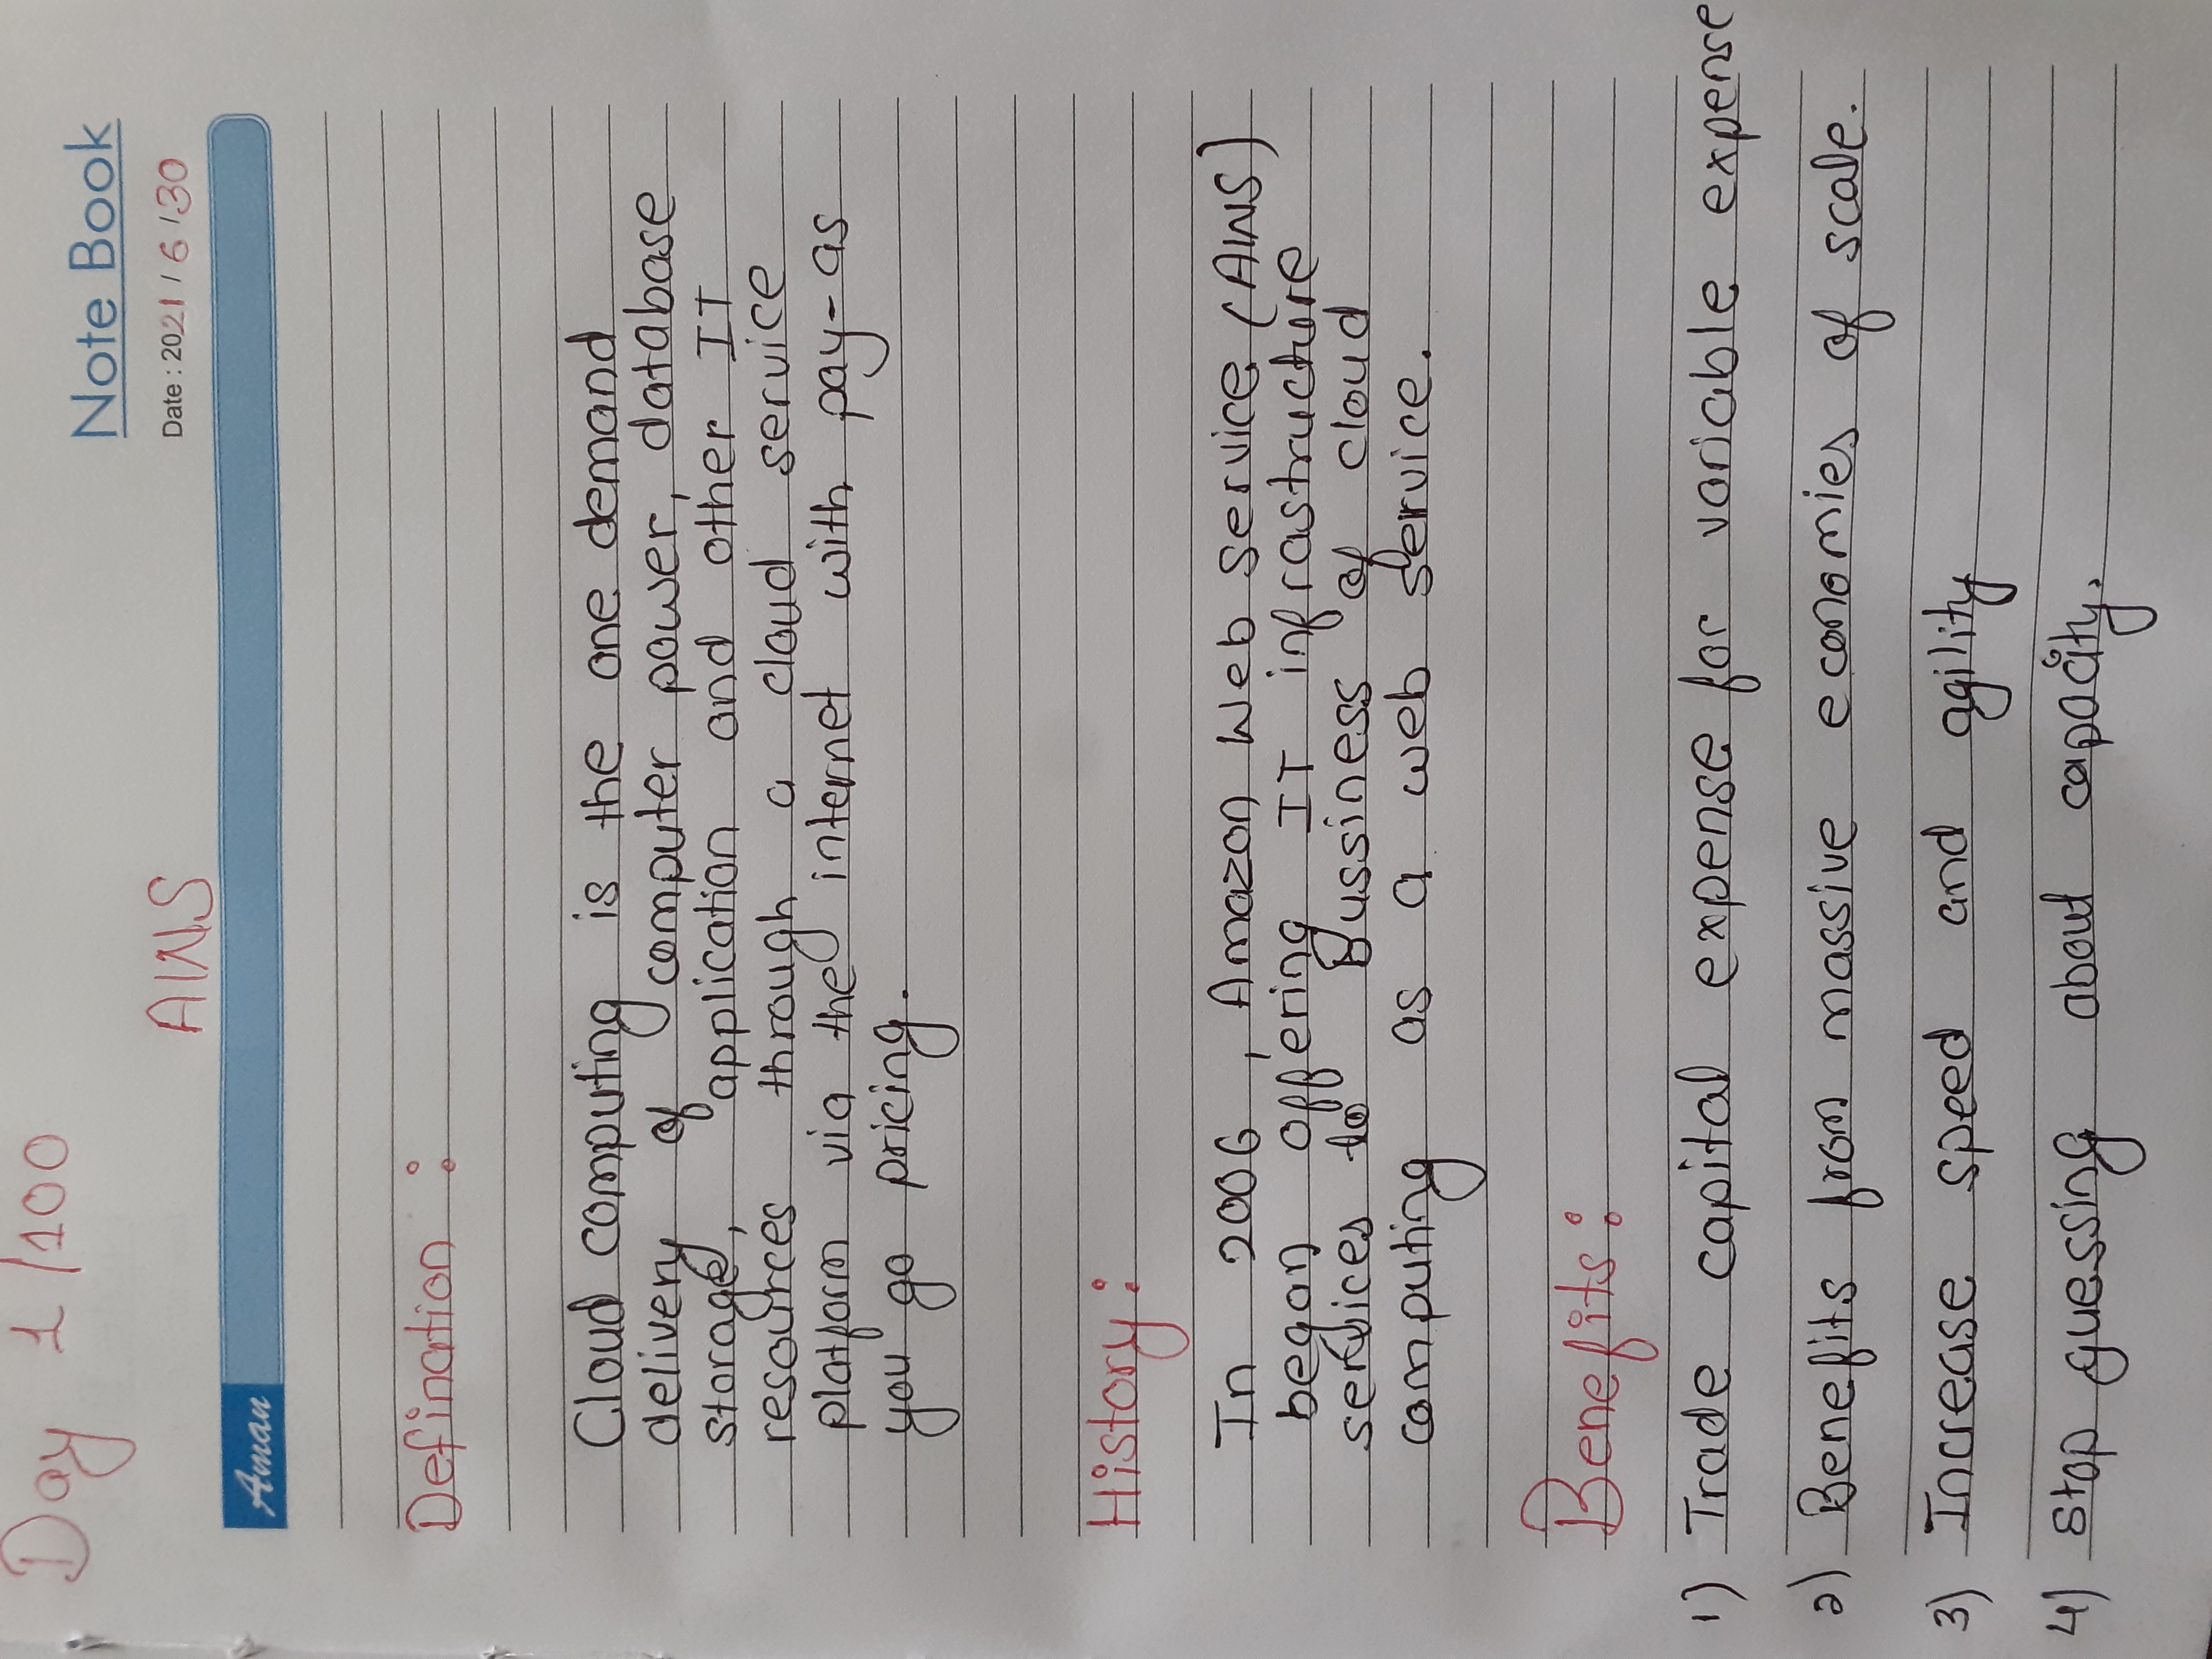 Day 1/100
Note Book
AWS
Date : 2021 / 6 / 30
Aman
Defination :
Cloud computing is the one demand
delivery of computer power, database
storage, application and other IT
resources through a cloud service
platform via the internet with pay-as
you go pricing.
History :
In 2006, Amazon Web Service (AWS)
began offering IT infrastructure
services to Bussiness of cloud
computing as a web service.
Benefits :
1) Trade capital expense for variable expense
2) Benefits from massive economies of scale.
3) Increase speed and agility
4) Stop guessing about capacity.